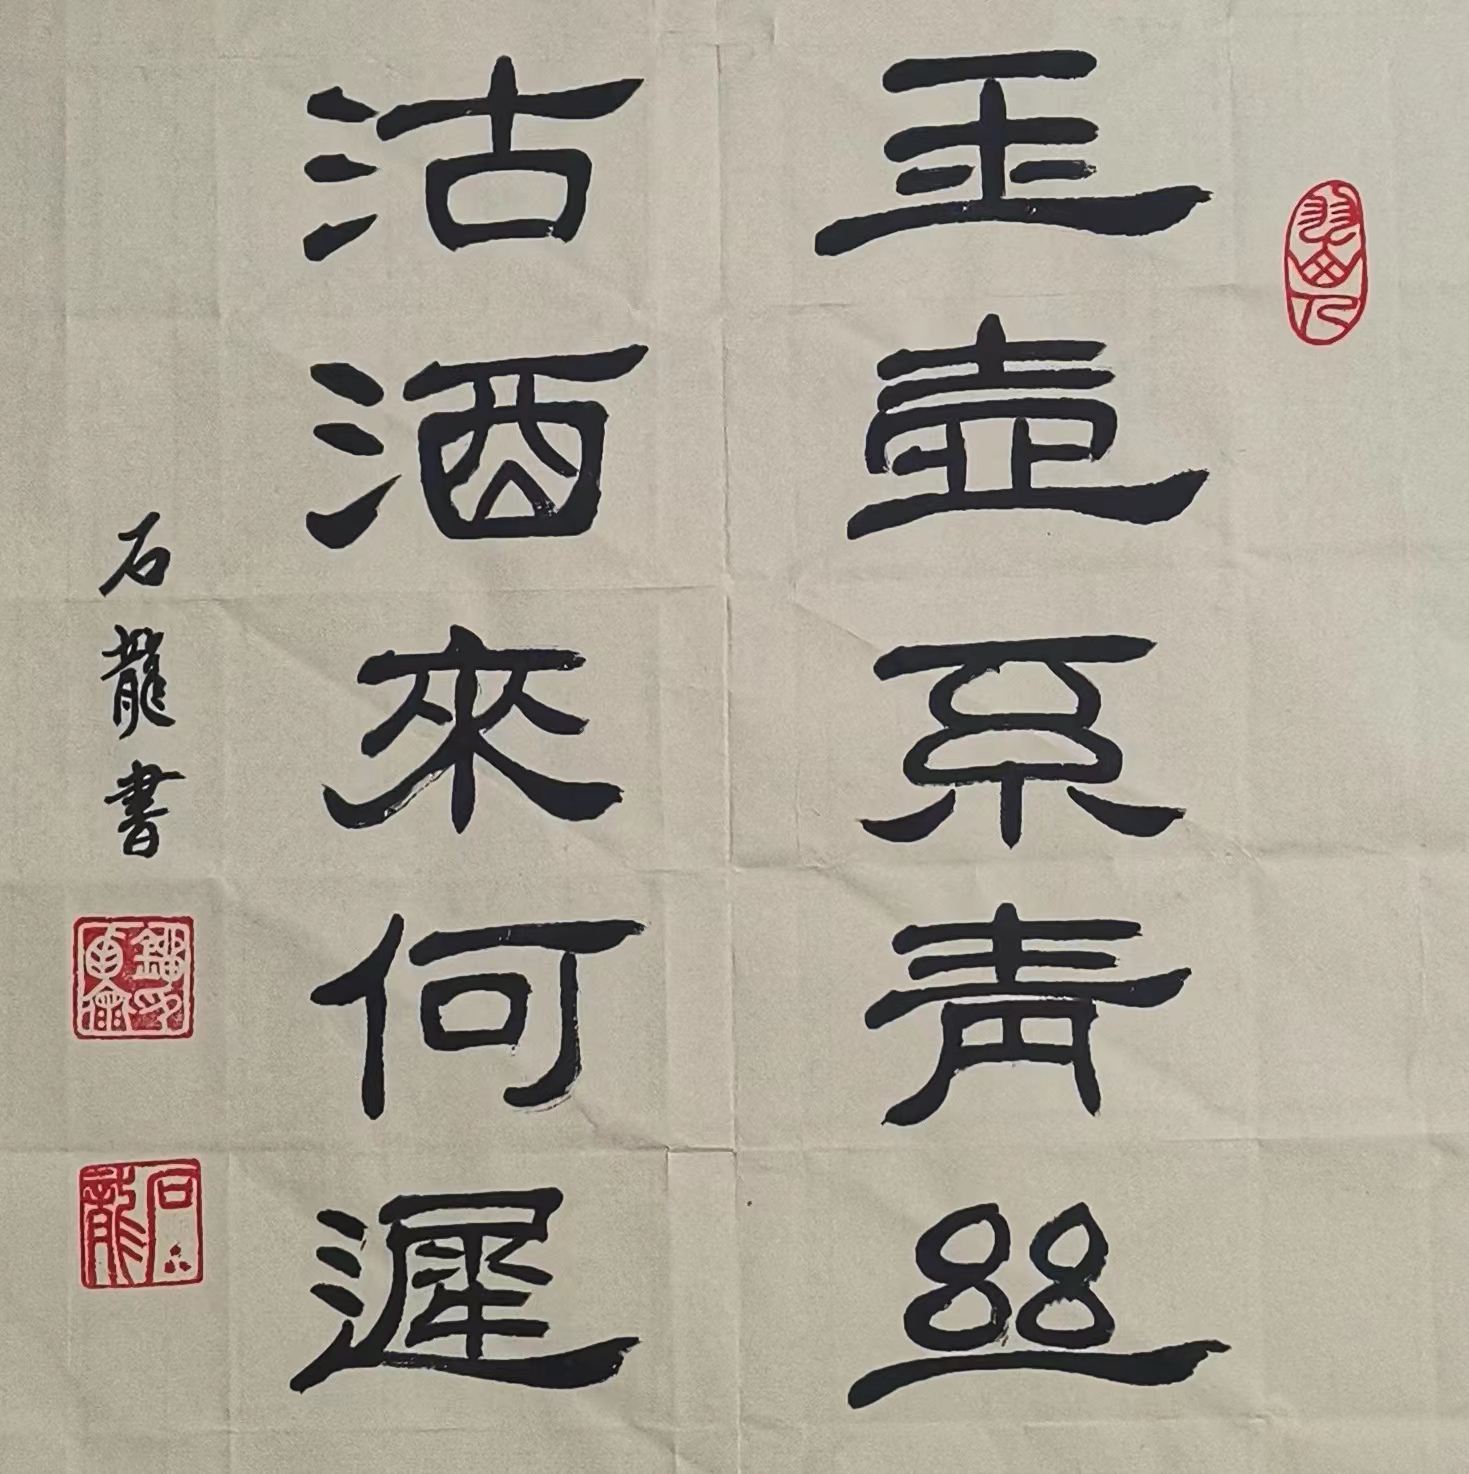 玉壺系青絲
沽酒來何遲
石龍書
石龍